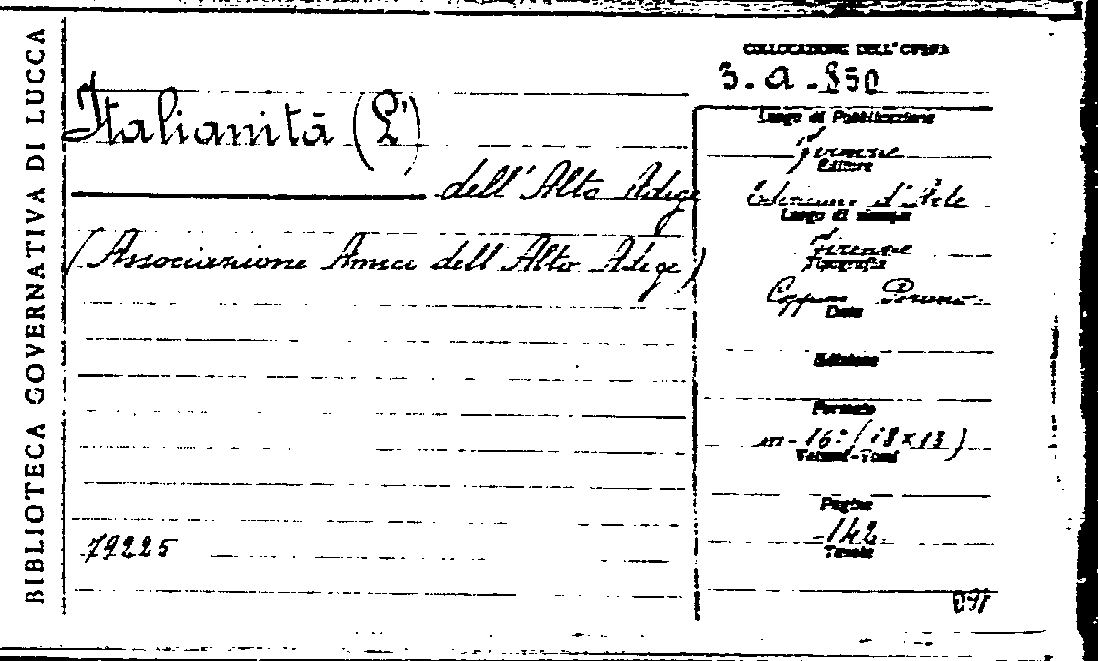 BIBLIOTECA GOVERNATIVA DI LUCCA
COLLOCAZIONE DELL'OPERA
3. a. 850
Italianità (L')
dell'Alto Adige
(Associazione Amici dell'Alto Adige)
Luogo di Pubblicazione
Firenze
Editore
Edizioni d'Arte
Luogo di stampa
Firenze
Tipografia
Data
Edizione
Formato
in-16° (18x13)
Volumi-Tomi
Pagine
142
Tavole
79225